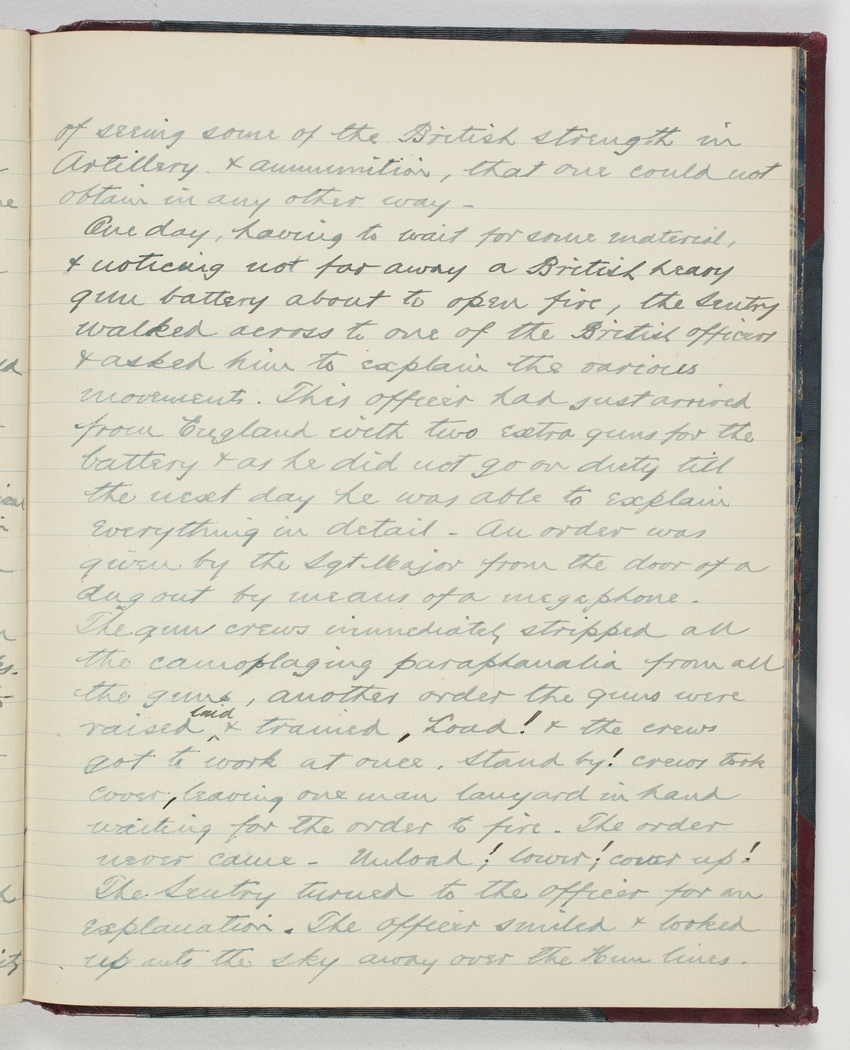 of seeing some of the British strength in
Artillery & ammunition, that one could not
obtain in any other way -
One day, having to wait for some material,
& noticing not far away a British heavy
gun battery about to open fire, the Sentry
walked across to one of the British officers
& asked him to explain the various
movements. This officer had just arrived
from England with two extra guns for the
battery & as he did not go on duty till
the next day he was able to explain
everything in detail - An order was
given by the Sgt Major from the door of a
dug out by means of a megaphone -
The gun crews immediately stripped all
the camoplaging paraphanalia from all
the guns, another order the guns were
raised laid & trained, Load! & the crews
got to work at once. Stand by! crews took
cover, leaving one man lanyard in hand
waiting for the order to fire - The order
never came - Unload! lower! cover up!
The Sentry turned to the officer for an
explanation. The officer smiled & looked
up into the sky away over the Hun lines.